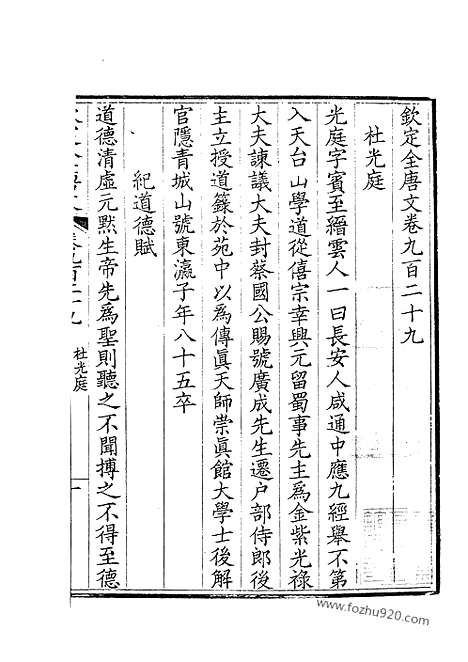 欽定全唐文卷九百二十九
杜光庭
光庭字賓至縉雲人一曰長安人咸通中應九經舉不第
入天台山學道從僖宗幸興元留蜀事先主為金紫光祿
大夫諫議大夫封蔡國公賜號廣成先生遷户部侍郎後
主立授道籙於苑中以為傳眞天師崇眞館大學士後解
官隱青城山號東瀛子年八十五卒
紀道德賦
道德清虛元默生帝先爲聖則聽之不聞搏之不得至德
杜光庭
一
www.fozhu920.com